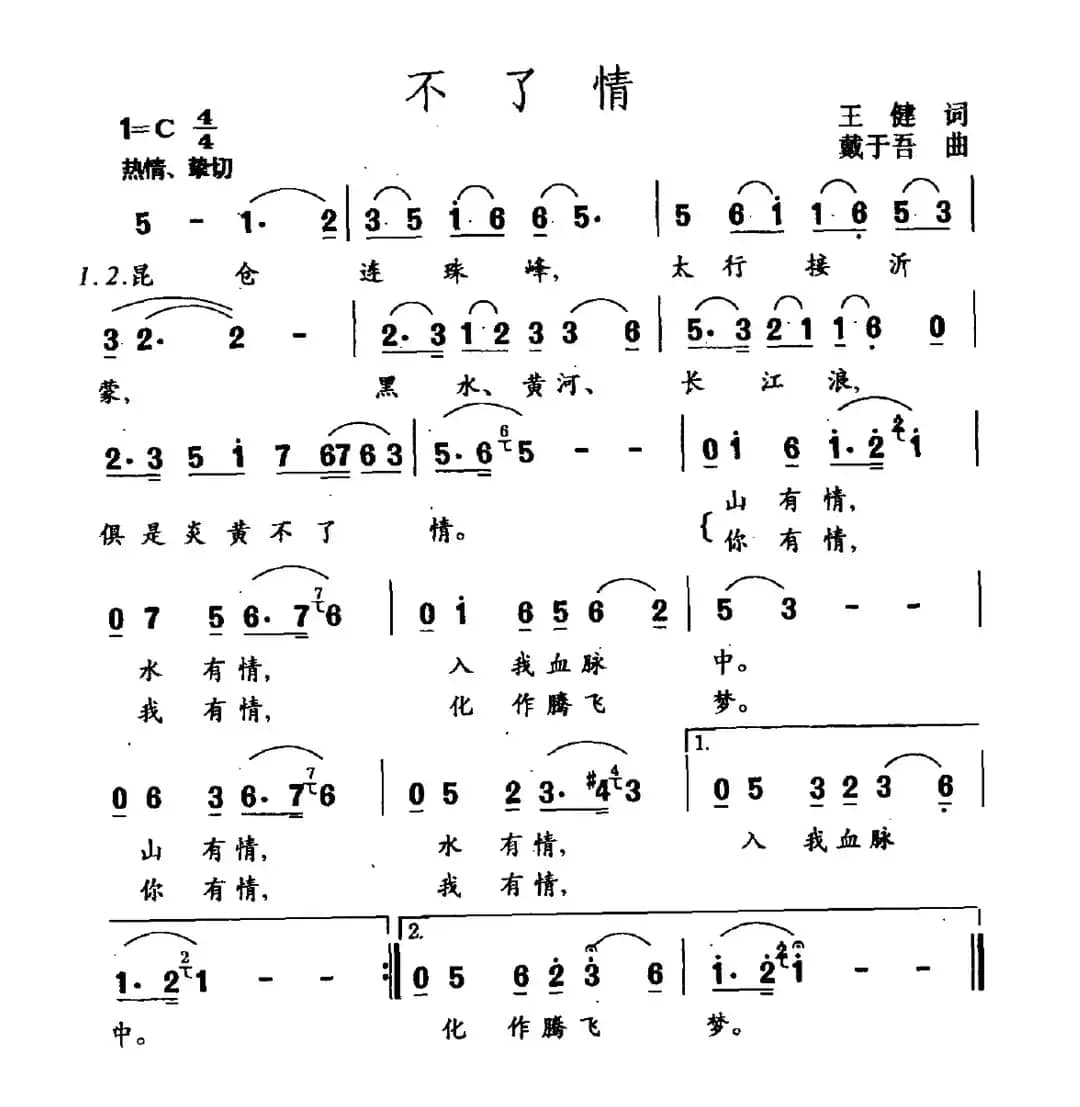 不了情
1=C 4/4
王健 词
热情、挚切
戴于吾 曲
5 - 1. 2 | 3. 5 i. 6 6 5. | 5 6. i 1. 6 5. 3 |
1.2.昆仓连珠峰, 太行接沂
3 2. 2 - | 2. 3 1. 2 3 3 6 | 5. 3 2. 1 1. 6 0 |
蒙, 黑水、黄河、长江浪,
2. 3 5 i 7 67 6 3 | 5. 6 6 5 - - | 0 i 6 i. 2 2 i |
俱是炎黄不了情。 {山有情,
你有情,
0 7 5 6. 7 7 6 | 0 i 6 5 6 2 | 5 3 - - |
水有情, 入我血脉中。
我有情, 化作腾飞梦。
1.
0 6 3 6. 7 7 6 | 0 5 2 3. #4 4 3 | 0 5 3 2 3 6 |
山有情, 水有情, 入我血脉
你有情, 我有情,
2.
1. 2 2 1 - - :| 0 5 6 2 3 6 | i. 2 2 i - - ||
中。 化作腾飞梦。